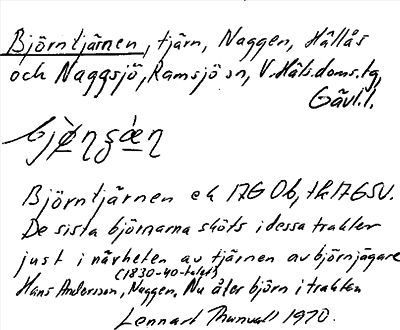 Björntjärnen, tjärn, Naggen, Hållås
och Naggsjö, Ramsjö sn, V. Häls. doms. tg,
Gävl. l.
Björntjärnen ek 17G Ob, tk 17G SV.
De sista björnarna sköts i dessa trakter
just i närheten av tjärnen av björnjägare
(1830-40-talet)
Hans Andersson, Naggen. Nu åter björn i trakten
Lennart 1970.